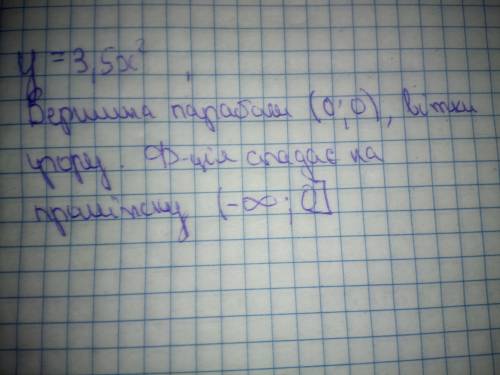 y = 3,5x²
Вершина параболи (0;0), вітки
угору. Ф-ція спадає на
проміжку (-∞; 0]